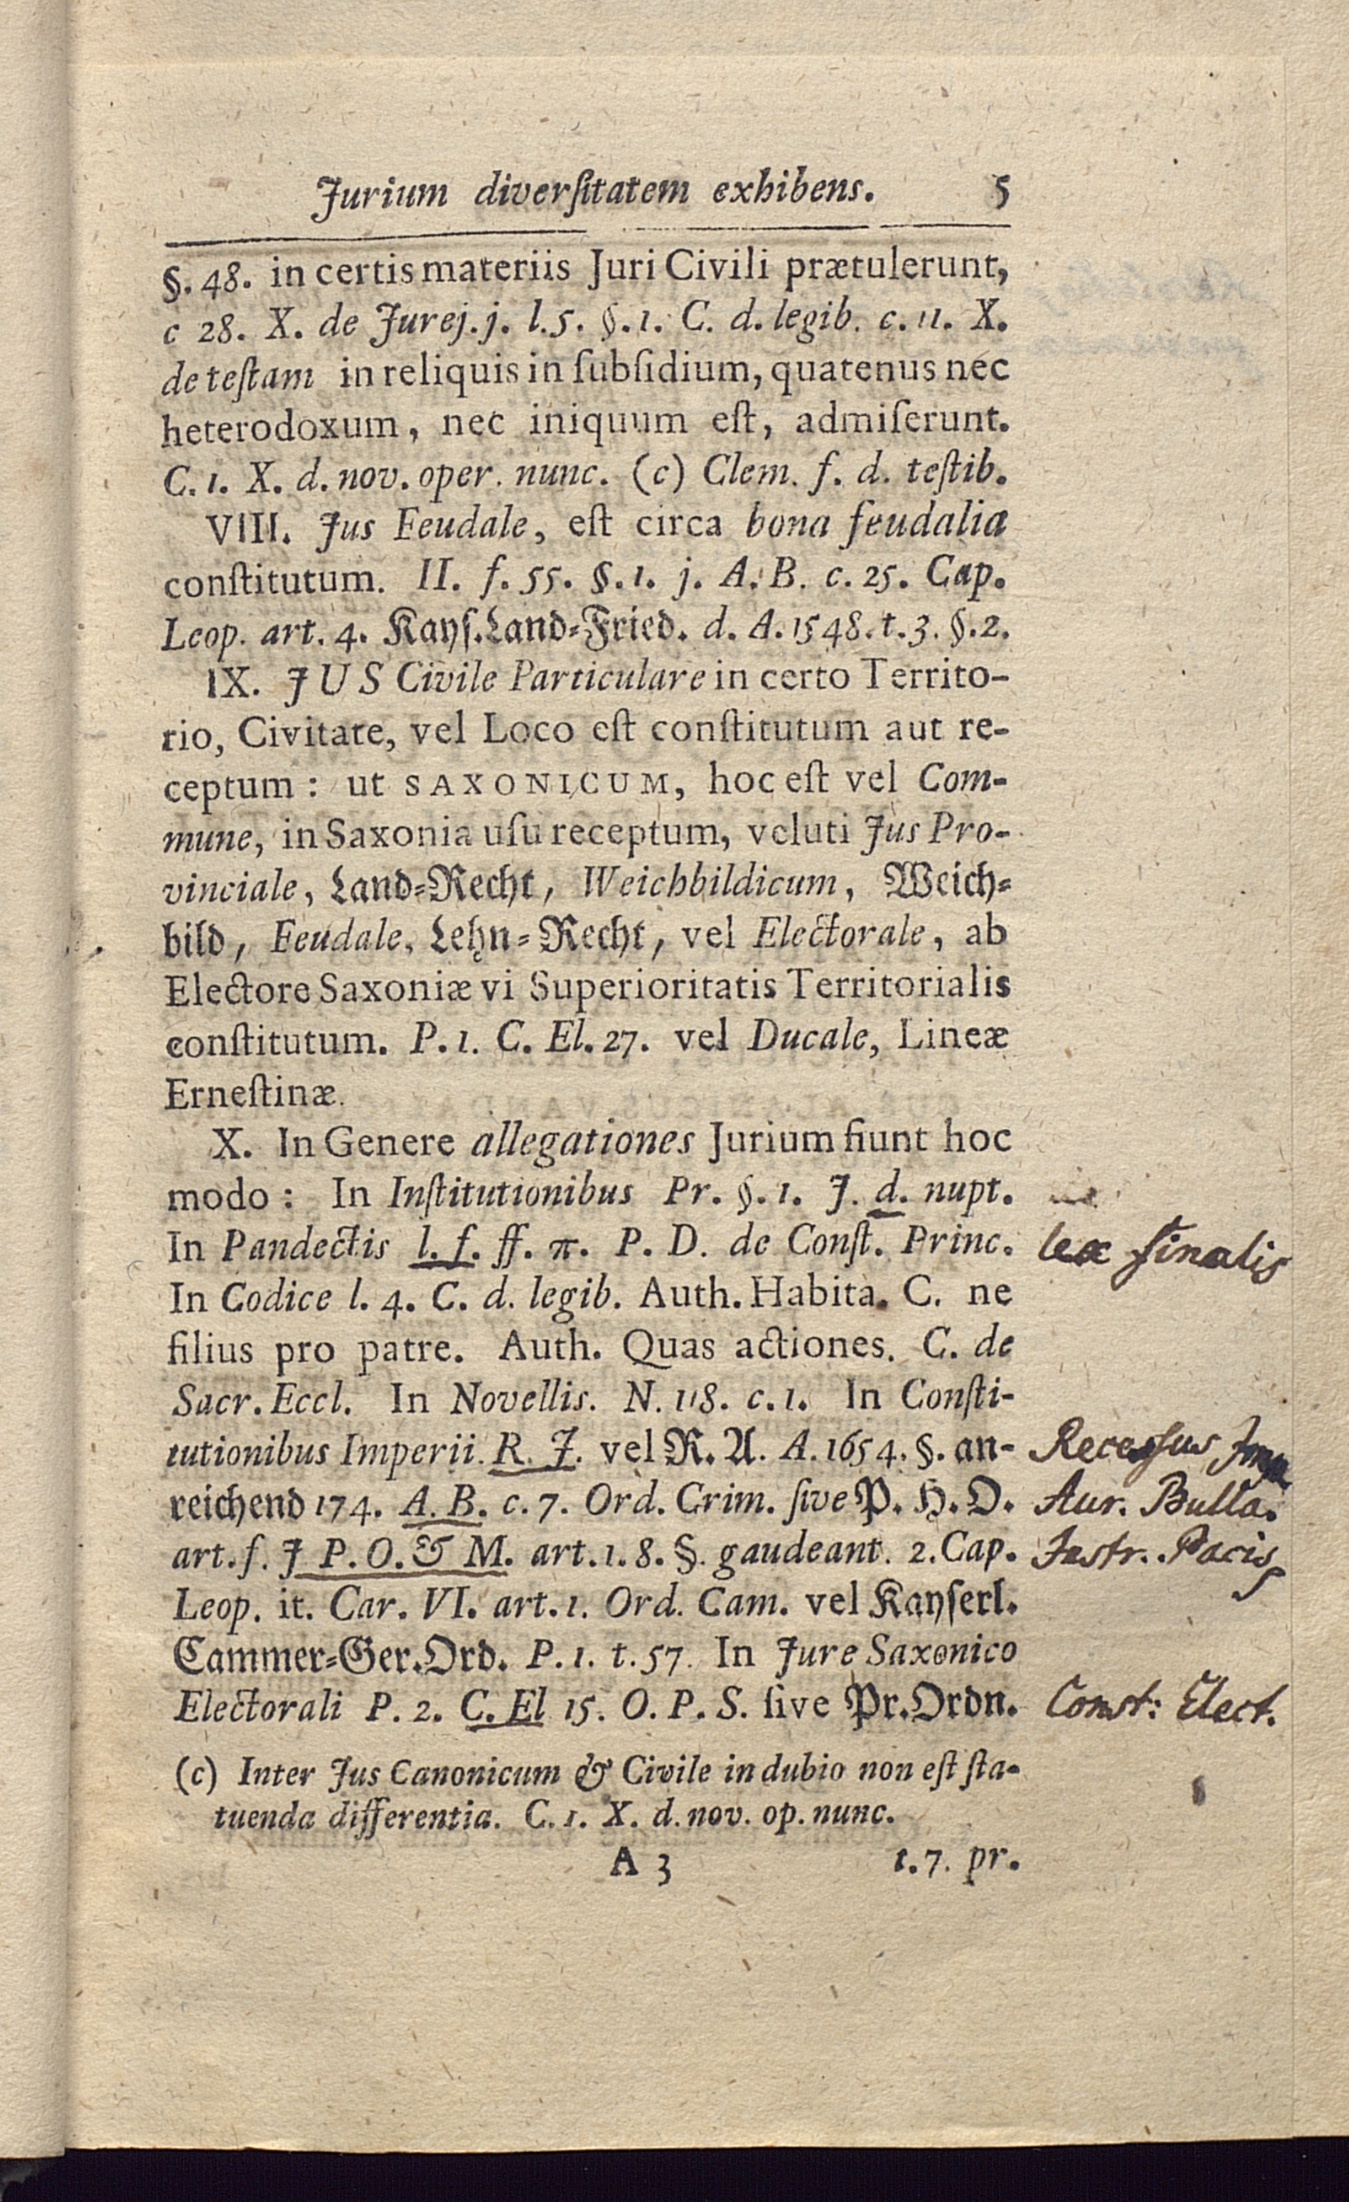 Jurium diverſitatem exhibens. 5
§. 48. in certis materiis Juri Civili prætulerunt,
c 28. X. de Jurej. j. l. 5. §. 1. C. d. legib. c. 11. X.
de teſtam in reliquis in ſubſidium, quatenus nec
heterodoxum, nec iniquum eſt, admiſerunt.
C. 1. X. d. nov. oper. nunc. (c) Clem. f. d. teſtib.
VIII. Jus Feudale, eſt circa bona feudalia
conſtitutum. II. f. 55. §. 1. j. A. B. c. 25. Cap.
Leop. art. 4. Kayſ. Land-Fried. d. A. 1548. t. 3. §. 2.
IX. JUS Civile Particulare in certo Territo-
rio, Civitate, vel Loco eſt conſtitutum aut re-
ceptum: ut SAXONICUM, hoc eſt vel Com-
mune, in Saxonia uſu receptum, veluti Jus Pro-
vinciale, Land-Recht, Weichbildicum, Weich-
bild, Feudale, Lehn-Recht, vel Electorale, ab
Electore Saxoniæ vi Superioritatis Territorialis
conſtitutum. P. 1. C. El. 27. vel Ducale, Lineæ
Erneſtinæ.
X. In Genere allegationes Jurium fiunt hoc
modo: In Inſtitutionibus Pr. §. 1. J. d. nupt.
In Pandectis l. f. ff. π. P. D. de Conſt. Princ. lex finalis
In Codice l. 4. C. d. legib. Auth. Habita. C. ne
filius pro patre. Auth. Quas actiones. C. de
Sacr. Eccl. In Novellis. N. 118. c. 1. In Conſti-
tutionibus Imperii. R. J. vel R. A. A. 1654. §. an- Recessus Imp
reichend 174. A. B. c. 7. Ord. Crim. ſive P. H. O. Aur. Bulla.
art. f. J P. O. & M. art. 1. 8. §. gaudeant. 2. Cap. Instr. Pacis
Leop. it. Car. VI. art. 1. Ord. Cam. vel Kayſerl.
Cammer-Ger. Ord. P. 1. t. 57. In Jure Saxonico
Electorali P. 2. C. El 15. O. P. S. ſive Pr. Ordn. Const: Elect.
(c) Inter Jus Canonicum & Civile in dubio non eſt ſta-
tuenda differentia. C. 1. X. d. nov. op. nunc.
A 3 t. 7. pr.